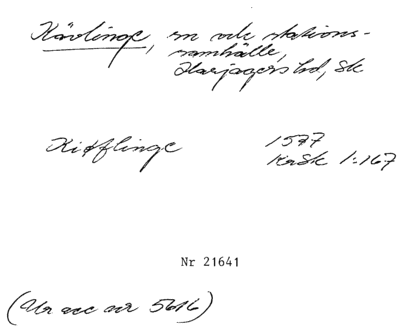 Kävlinge, sn och stations-
samhälle,
Harjagers hd, Sk
Kiøflinge 1577
KaSk 1:167
Nr 21641
(Ur acc nr 5616)